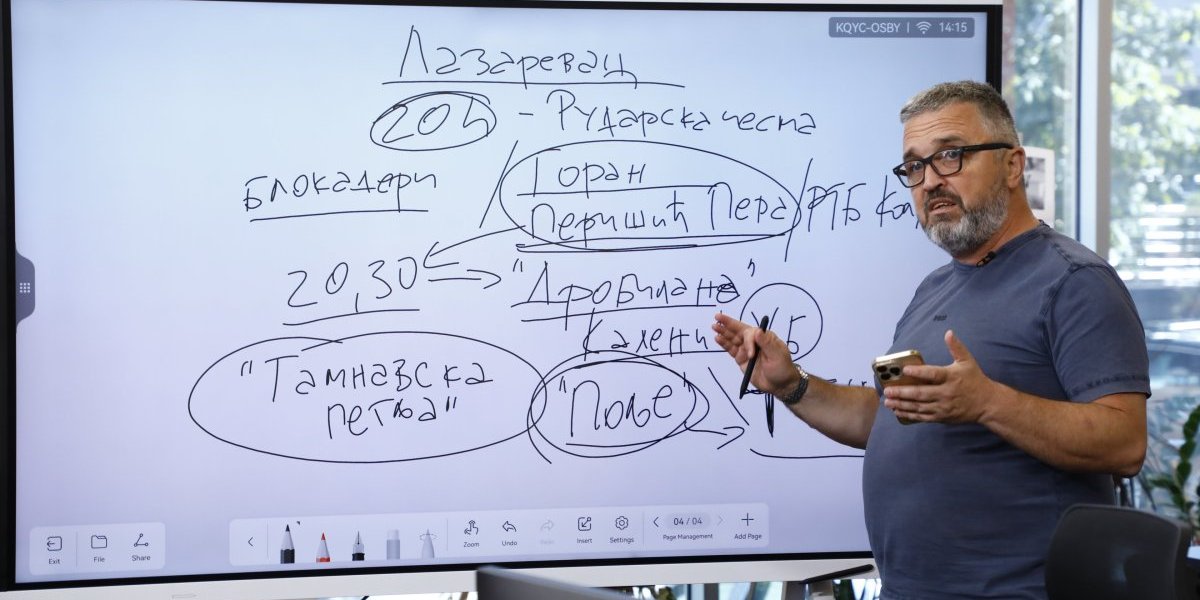 KQYC-OSBY | 14:15
Лазаревац
20h - Рударска чесма
Блокадери / Горан / РТБ Кол
Перишић Пера
20,30 "Дробилана"
Калени УБ
"Тамнавска петља" "Поље"
Exit File Share Zoom Undo Redo Insert Settings 04 / 04 Page Management Add Page